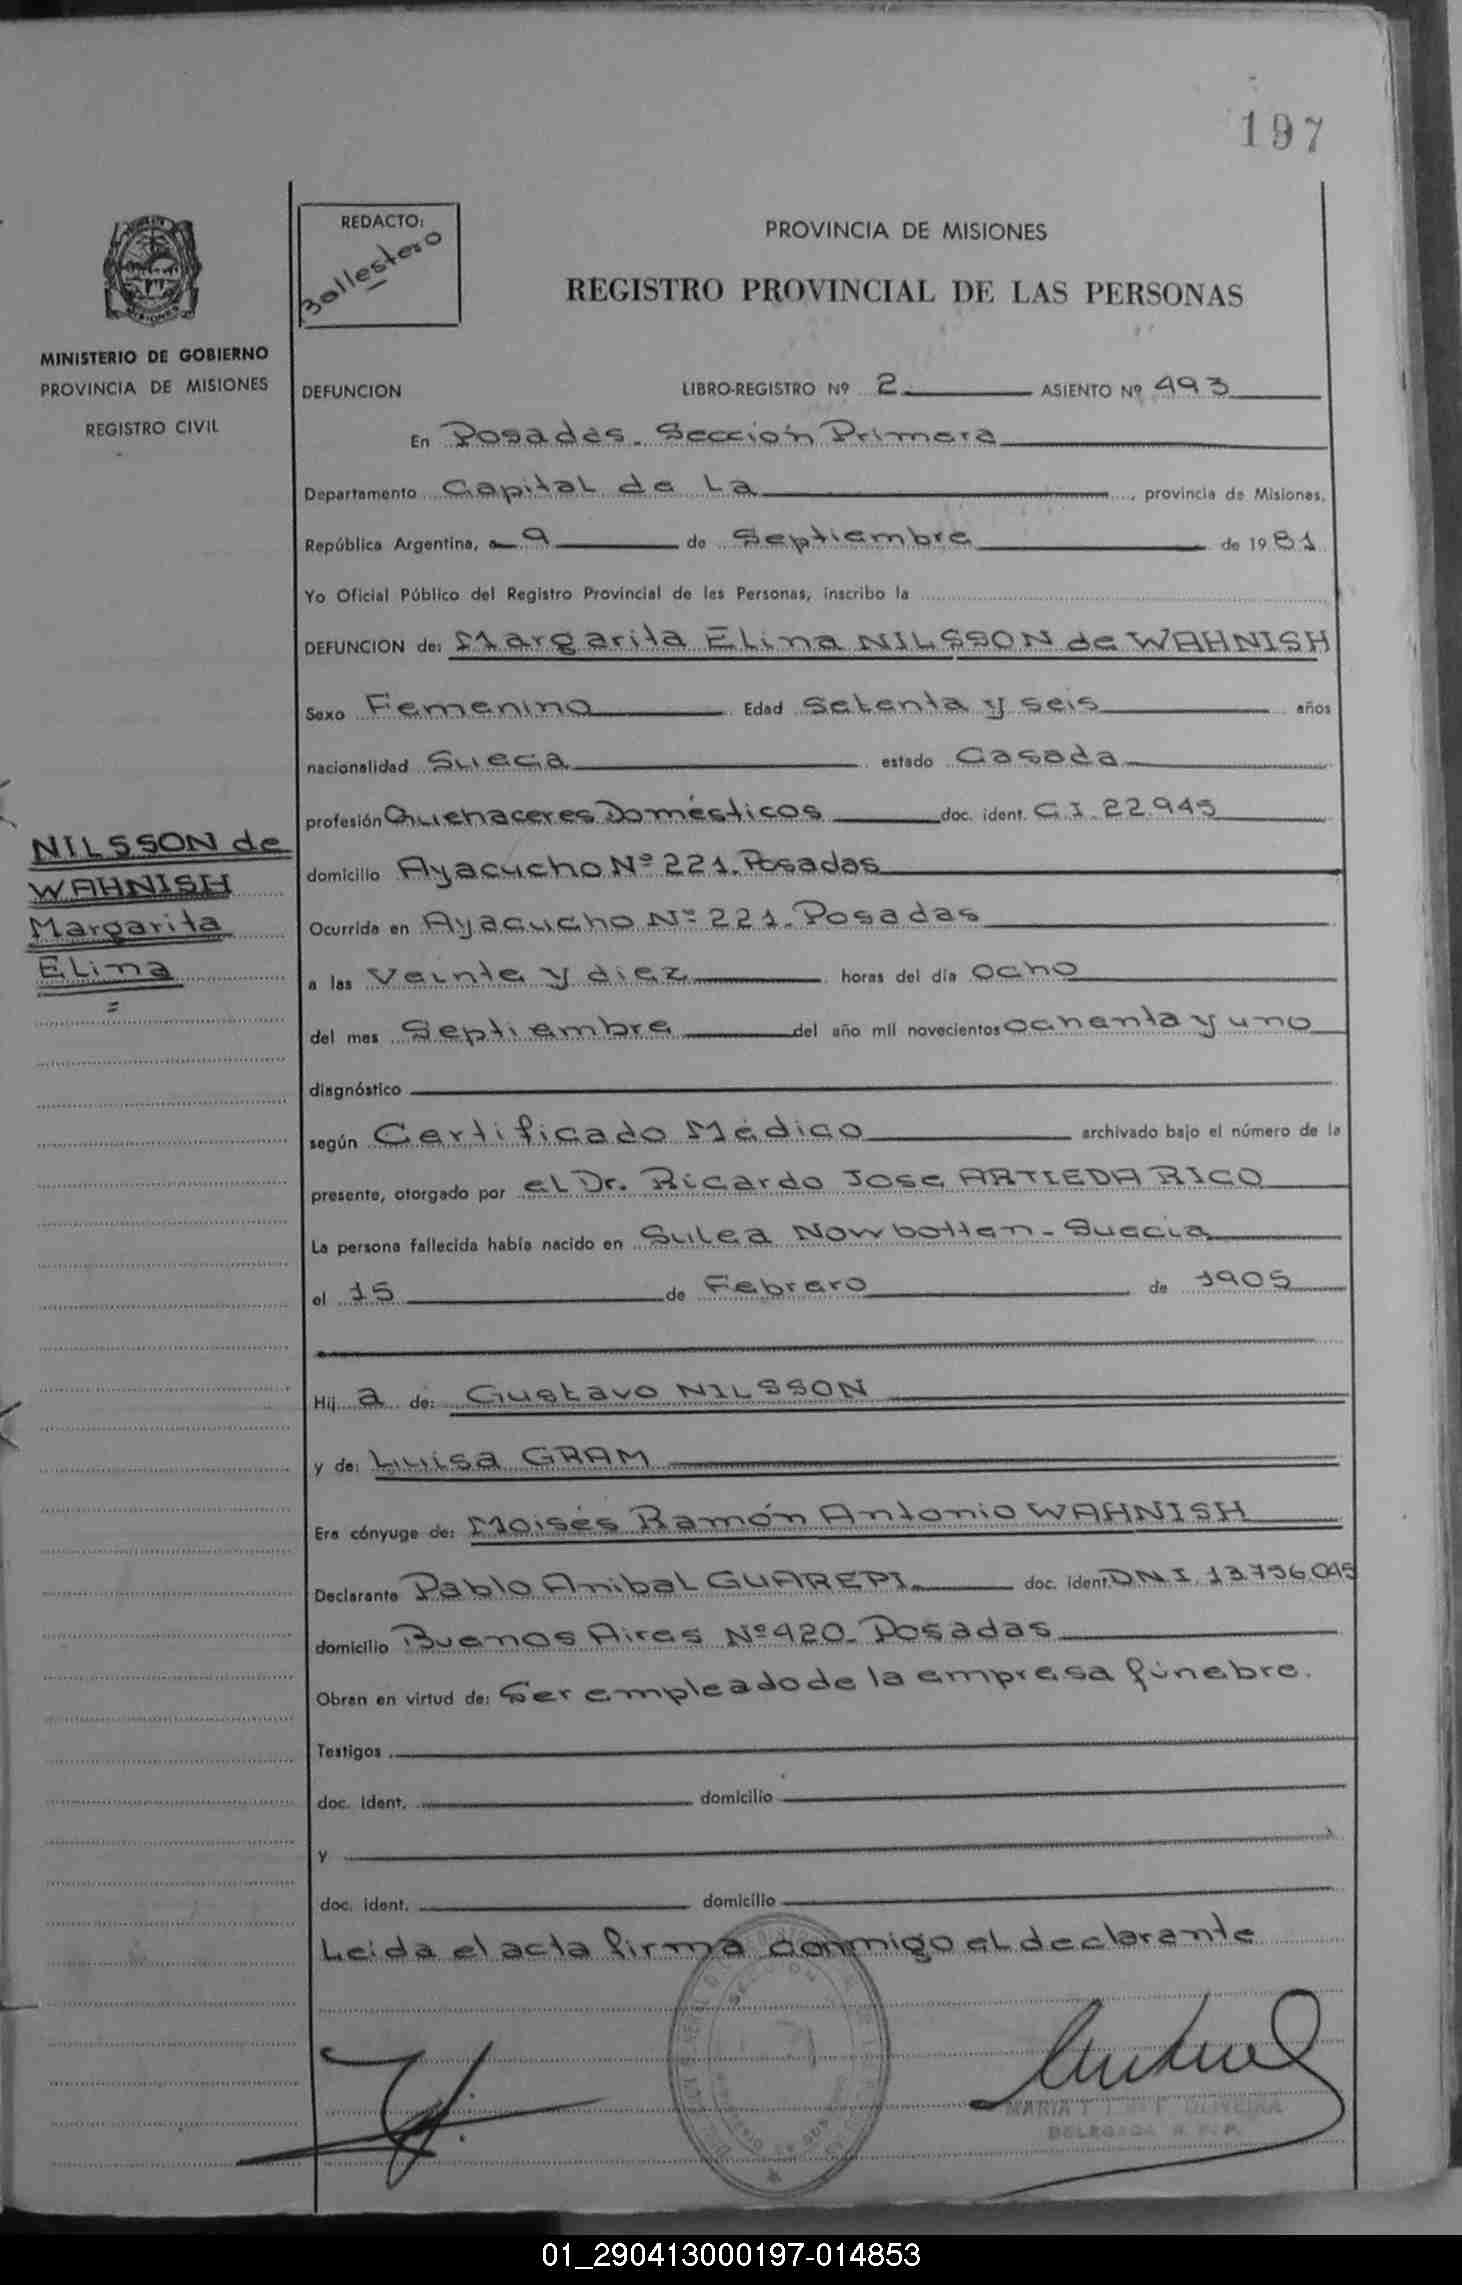 197
REDACTO:
Ballestero
PROVINCIA DE MISIONES
REGISTRO PROVINCIAL DE LAS PERSONAS
MISIONES
MINISTERIO DE GOBIERNO
PROVINCIA DE MISIONES
REGISTRO CIVIL
DEFUNCION LIBRO-REGISTRO Nº 2 ASIENTO Nº 493
En Posadas. Sección Primera
Departamento Capital de La, provincia de Misiones,
República Argentina, a 9 de Septiembre de 1981
Yo Oficial Público del Registro Provincial de las Personas, inscribo la
DEFUNCION de: Margarita Elina NILSSON de WAHNISH
Sexo Femenino Edad Setenta y seis años
nacionalidad Sueca estado Casada
profesión Quehaceres Domésticos doc. ident. C.I. 22.945
NILSSON de
WAHNISH
Margarita
Elina
domicilio Ayacucho Nº 221. Posadas
Ocurrida en Ayacucho Nº 221. Posadas
a las Veinte y diez horas del día ocho
del mes Septiembre del año mil novecientos ochenta y uno
diagnóstico
según Certificado Médico archivado bajo el número de la
presente, otorgado por el Dr. Ricardo Jose ARTIEDA RICO
La persona fallecida había nacido en Sulea Nowbotten - Suecia
el 15 de Febrero de 1905
Hij a de: Gustavo NILSSON
y de: Luisa GRAM
Era cónyuge de: Moisés Ramón Antonio WAHNISH
Declarante Pablo Anibal GUAREPI doc. ident. DNI 13.756.045
domicilio Buenos Aires Nº 420. Posadas
Obran en virtud de: Ser empleado de la empresa fúnebre.
Testigos
doc. ident. domicilio
y
doc. ident. domicilio
Leida el acta firma conmigo el declarante
MARIA OLIVEIRA
DELEGADA R.P.P.
01_290413000197-014853